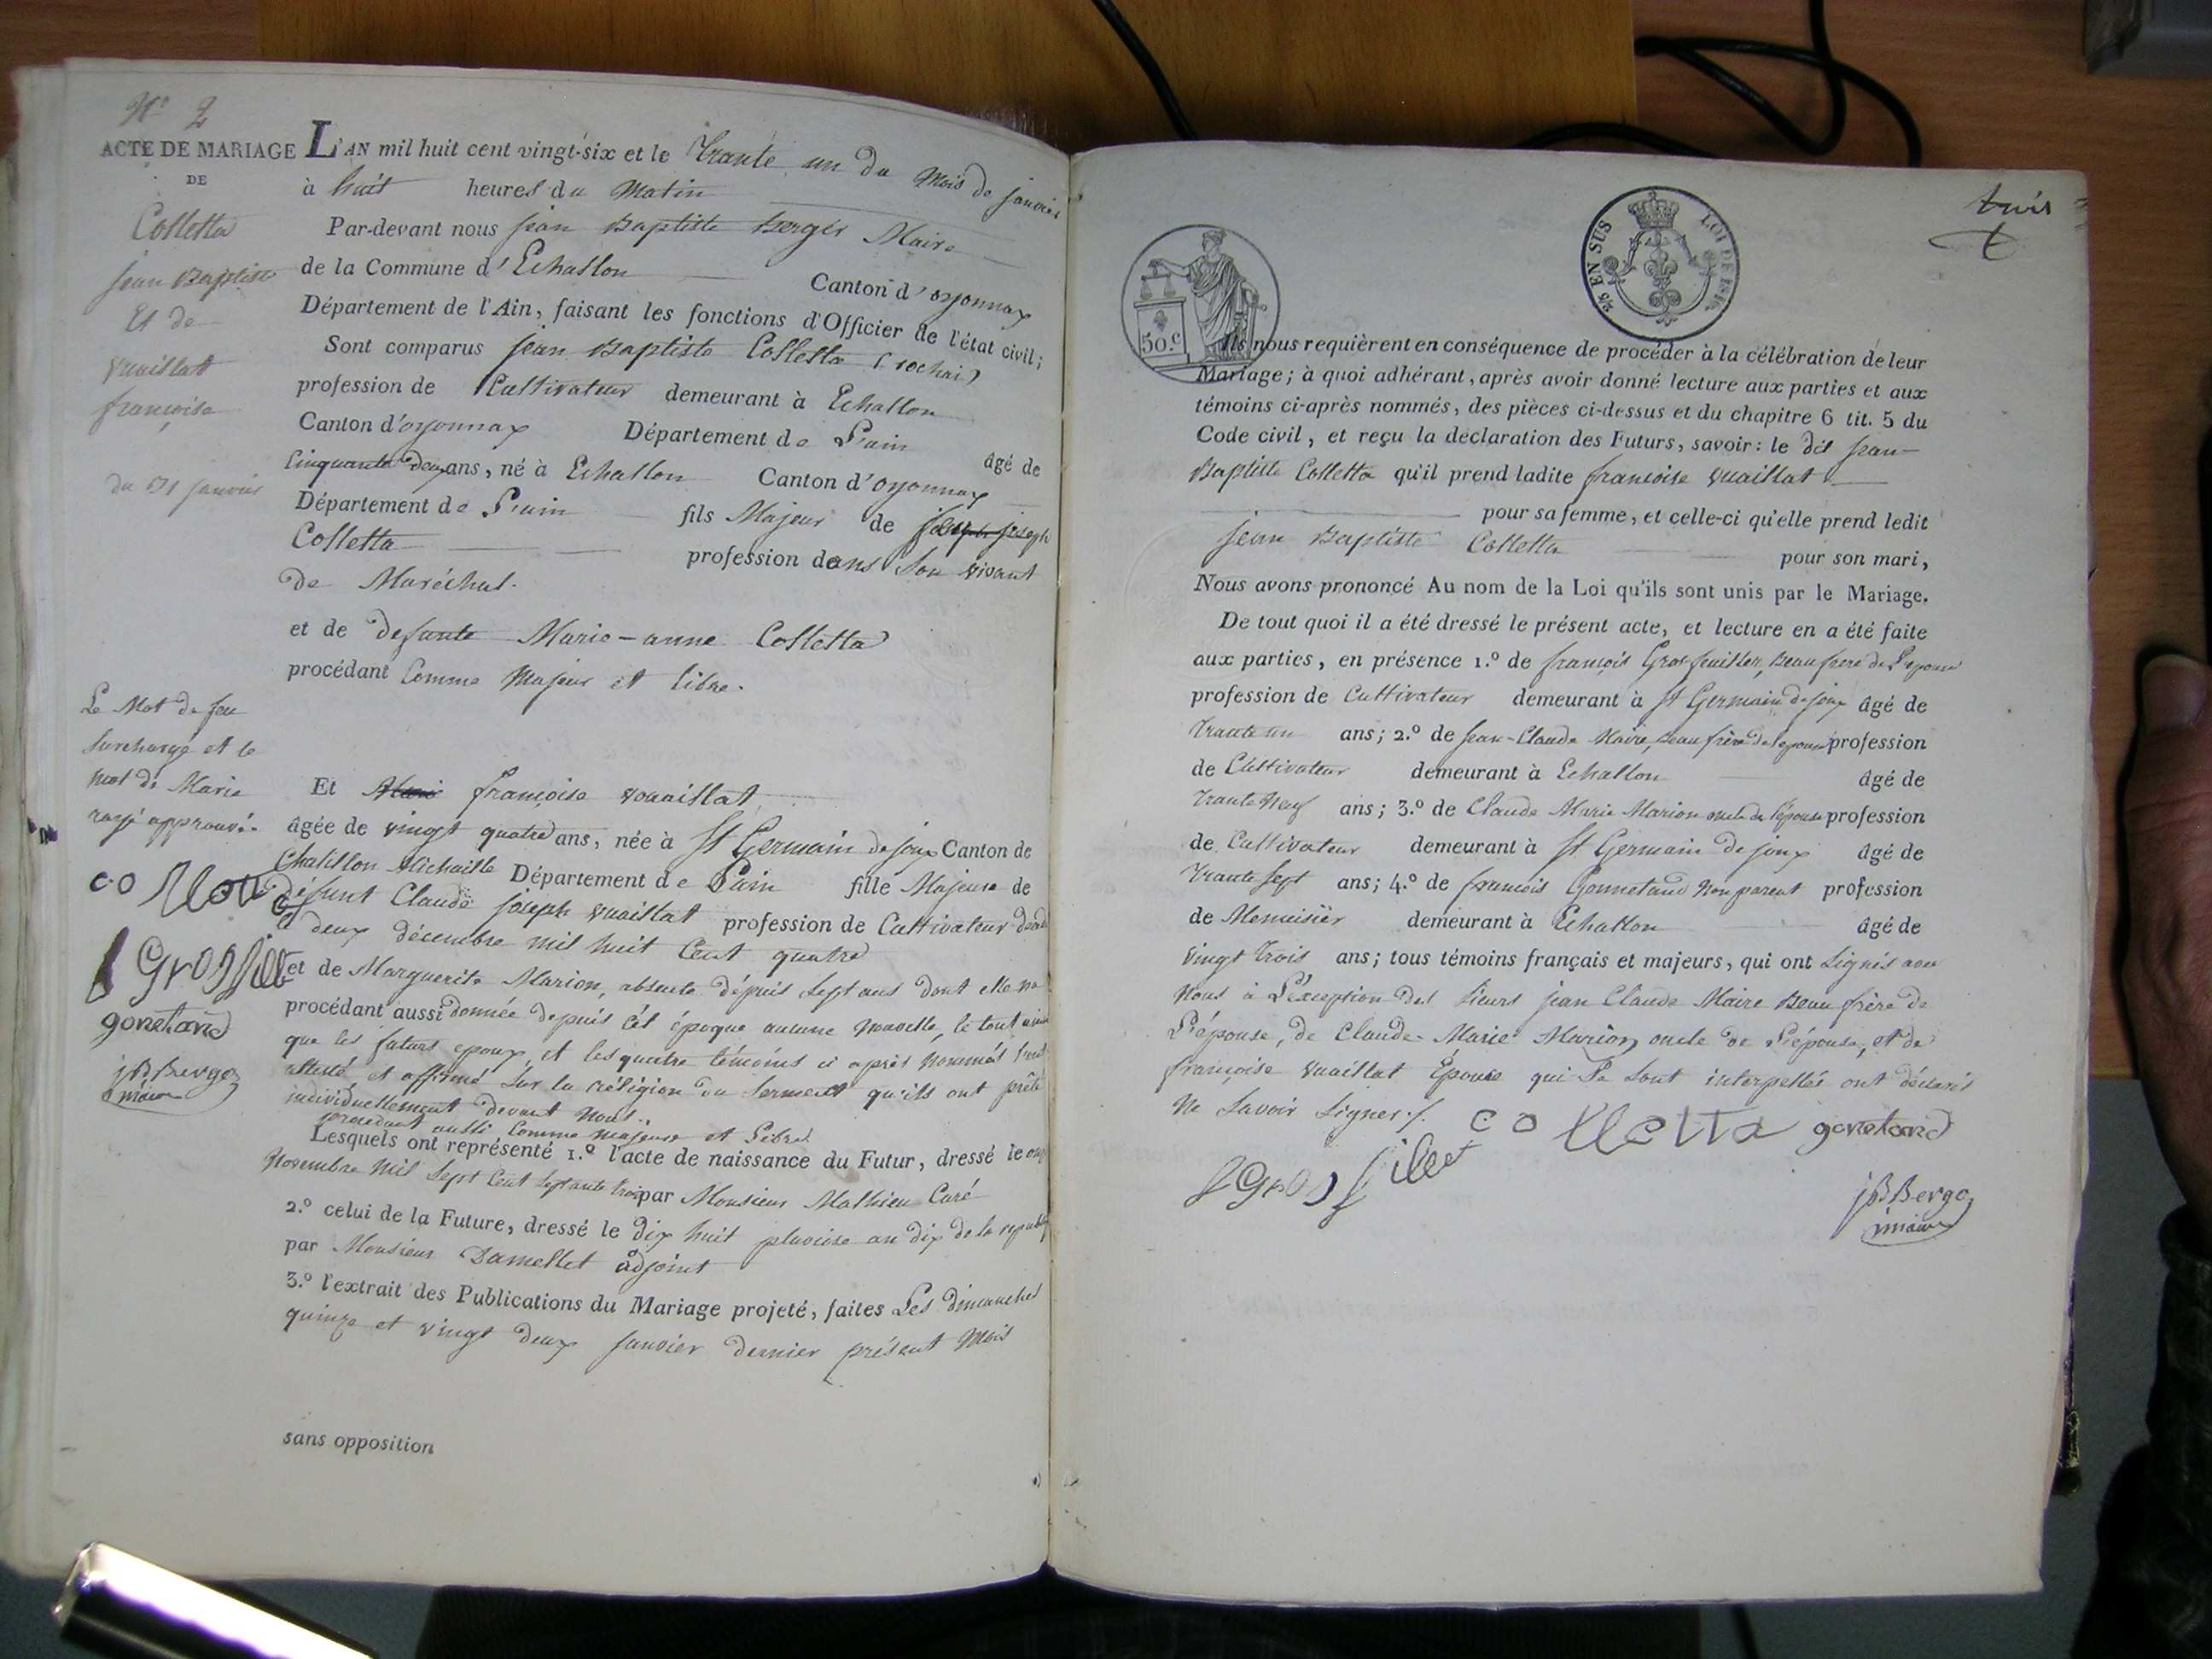 N.o 2
ACTE DE MARIAGE
DE
Colletta
jean Baptiste
Et de
Vuaillat
françoise
du 31 janvier
Le Mot de feu
surchargé et le
mot de Marie
rayé approuvé.
colletta
gonetand
jB Berger
maire
L'AN mil huit cent vingt-six et le Trante un du Mois de janvier
à huit heures du Matin
Par-devant nous jean Baptiste Berger Maire
de la Commune d'Echallon Canton d'oyonnax
Département de l'Ain, faisant les fonctions d'Officier de l'état civil;
Sont comparus jean Baptiste Colletta (rochai)
profession de Cultivateur demeurant à Echallon
Canton d'oyonnax Département de L'ain âgé de
Cinquante deux ans, né à Echallon Canton d'oyonnax
Département de L'ain fils Majeur de feu joseph
Colletta profession dans Son vivant
de Maréchal.
et de defunte Marie-anne Colletta
procédant Comme Majeur et libre.
Et Marie françoise vouaillat
âgée de vingt quatre ans, née à St Germain de joux Canton de
Chatillon Michaille Département de L'ain fille Majeure de
défunt Claude joseph vuaillat profession de Cultivateur
deux décembre mil huit Cent quatre
et de Marguerite Marion, absente dépuis Sept ans dont elle na
procédant aussi donnée depuis cét époque aucune Nouvelle, le tout ainsi
que les futurs epoux, et les quatre témoins ci après Nommés l'ont
attesté, et affirmé Sur la réligion du Serment qu'ils ont prêté
individuellement devant Nous.
procedant aussi Comme majeure et Libre.
Lesquels ont représenté 1.º l'acte de naissance du Futur, dressé le onze
Novembre Mil Sept Cent Septante trois par Monsieur Mathieu Curé
2.º celui de la Future, dressé le Dix huit pluviose an dix de la republiq
par Monsieur Damellet adjoint
3.º l'extrait des Publications du Mariage projeté, faites Les dimanches
quinze et vingt deux janvier dernier présent Mois
sans opposition
trois
50.c
25 EN SUS
LOI DE 1816
Ils nous requièrent en conséquence de procéder à la célébration de leur
Mariage; à quoi adhérant, après avoir donné lecture aux parties et aux
témoins ci-après nommés, des pièces ci-dessus et du chapitre 6 tit. 5 du
Code civil, et reçu la déclaration des Futurs, savoir: le dit jean-
Baptiste Colletta qu'il prend ladite françoise vuaillat
pour sa femme, et celle-ci qu'elle prend ledit
jean Baptiste Colletta pour son mari,
Nous avons prononcé Au nom de la Loi qu'ils sont unis par le Mariage.
De tout quoi il a été dressé le présent acte, et lecture en a été faite
aux parties, en présence 1.º de françois Grosfeuillet, Beau frere de L'epouse
profession de Cultivateur demeurant à St Germain de joux âgé de
Trante un ans; 2.º de jean-Claude Maire, beau frère de lepouse profession
de Cultivateur demeurant à Echallon âgé de
Trante Neuf ans; 3.º de Claude Marie Marion oncle de l'épouse profession
de Cultivateur demeurant à St Germain de joux âgé de
Trante Sept ans; 4.º de françois Gonnetand Non parent profession
de Menuisier demeurant à Echallon âgé de
Vingt Trois ans; tous témoins français et majeurs, qui ont Signés avec
Nous à L'éxception des Sieurs jean Claude Maire Beau frère de
L'épouse, de Claude-Marie Marion oncle de L'épouse, et de
françoise vuaillat Epouse qui De Sont interpellés ont déclarés
Ne Savoir Signer./.
colletta gonetand
jB Berger
maire